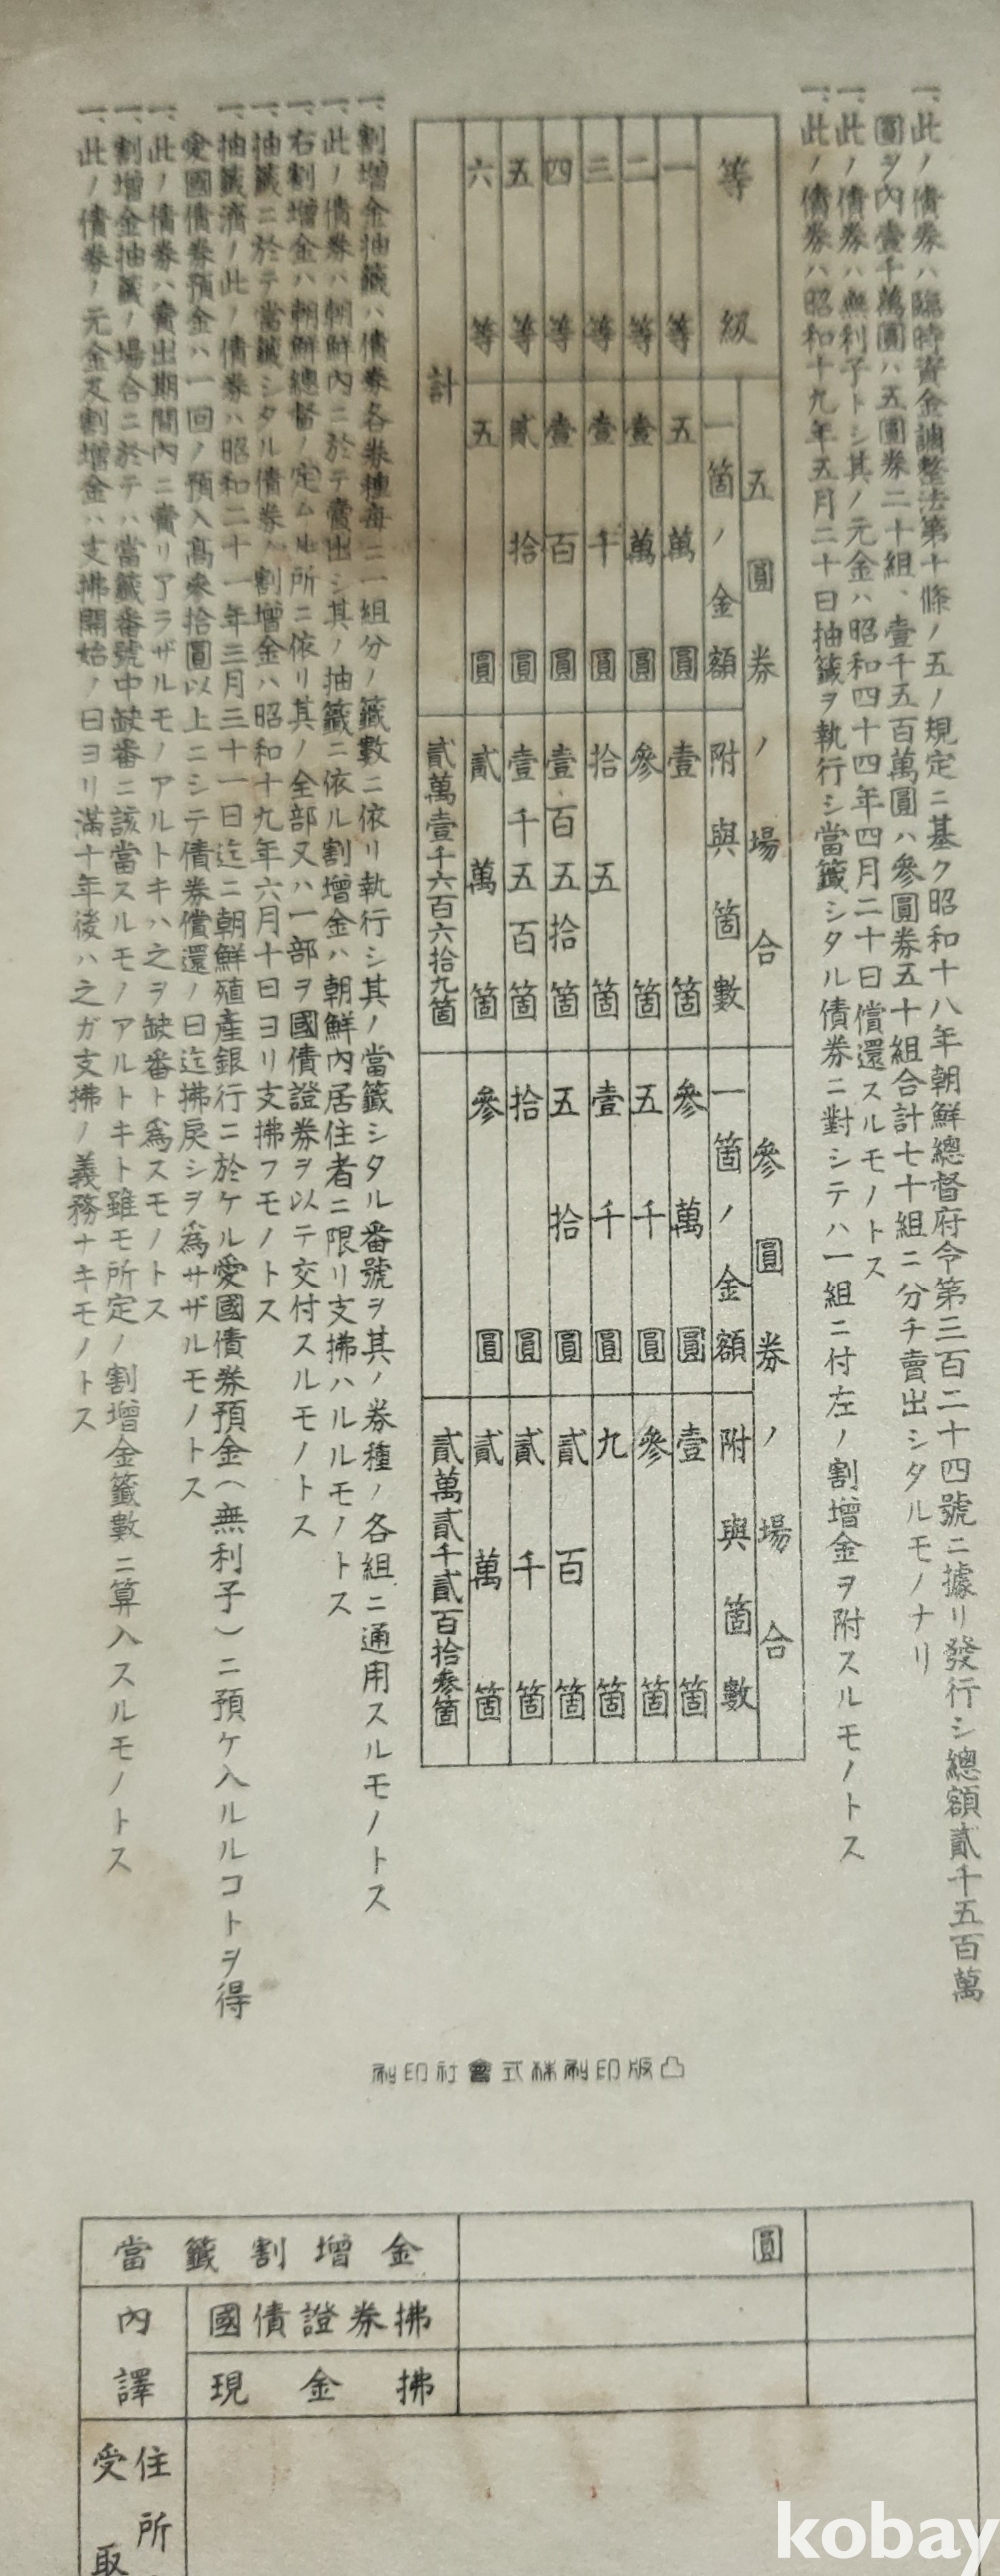 一、此ノ債券ハ臨時資金調整法第十條ノ五ノ規定ニ基ク昭和十八年朝鮮總督府令第三百二十四號ニ據リ發行シ總額貳千五百萬
圓ヲ內壹千萬圓ハ五圓券二十組、壹千五百萬圓ハ參圓券五十組合計七十組ニ分チ賣出シタルモノナリ
一、此ノ債券ハ無利子トシ其ノ元金ハ昭和四十四年四月二十日償還スルモノトス
一、此ノ債券ハ昭和十九年五月二十日抽籤ヲ執行シ當籤シタル債券ニ對シテハ一組ニ付左ノ割增金ヲ附スルモノトス
等級
五圓券ノ場合
參圓券ノ場合
一箇ノ金額 附與箇數 一箇ノ金額 附與箇數
一等 五萬圓 壹箇 參萬圓 壹箇
二等 壹萬圓 參箇 五千圓 參箇
三等 壹千圓 拾五箇 壹千圓 九箇
四等 壹百圓 壹百五拾箇 五拾圓 貳百箇
五等 貳拾圓 壹千五百箇 拾圓 貳千箇
六等 五圓 貳萬箇 參圓 貳萬箇
計 貳萬壹千六百六拾九箇 貳萬貳千貳百拾參箇
一、割增金抽籤ハ債券各券種每ニ一組分ノ籤數ニ依リ執行シ其ノ當籤シタル番號ヲ其ノ券種ノ各組ニ通用スルモノトス
一、此ノ債券ハ朝鮮內ニ於テ賣出シ其ノ抽籤ニ依ル割增金ハ朝鮮內居住者ニ限リ支拂ハルルモノトス
一、右割增金ハ朝鮮總督ノ定ムル所ニ依リ其ノ全部又ハ一部ヲ國債證券ヲ以テ交付スルモノトス
一、抽籤ニ於テ當籤シタル債券ノ割增金ハ昭和十九年六月十日ヨリ支拂フモノトス
一、抽籤濟ノ此ノ債券ハ昭和二十一年三月三十一日迄ニ朝鮮殖產銀行ニ於ケル愛國債券預金(無利子)ニ預ケ入ルルコトヲ得
愛國債券預金ハ一回ノ預入高參拾圓以上ニシテ債券償還ノ日迄拂戾シヲ爲サザルモノトス
一、此ノ債券ハ賣出期間內ニ賣リアラザルモノアルトキハ之ヲ缺番ト爲スモノトス
一、割增金抽籤ノ場合ニ於テハ當籤番號中缺番ニ該當スルモノアルトキト雖モ所定ノ割增金籤數ニ算入スルモノトス
一、此ノ債券ノ元金及割增金ハ支拂開始ノ日ヨリ滿十年後ハ之ガ支拂ノ義務ナキモノトス
刷印社會式株刷印版凸
當籤割增金 圓
內譯
國債證券拂
現金拂
住所
受取
kobay